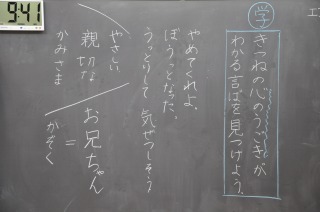 学
きつねの心のうごきが
わかる言ばを見つけよう。
やめてくれよ。
ぼうっとなった。
うっとりして 気ぜつしそう
やさしい
親切な
かみさま
お兄ちゃん
=
かぞく
9:41